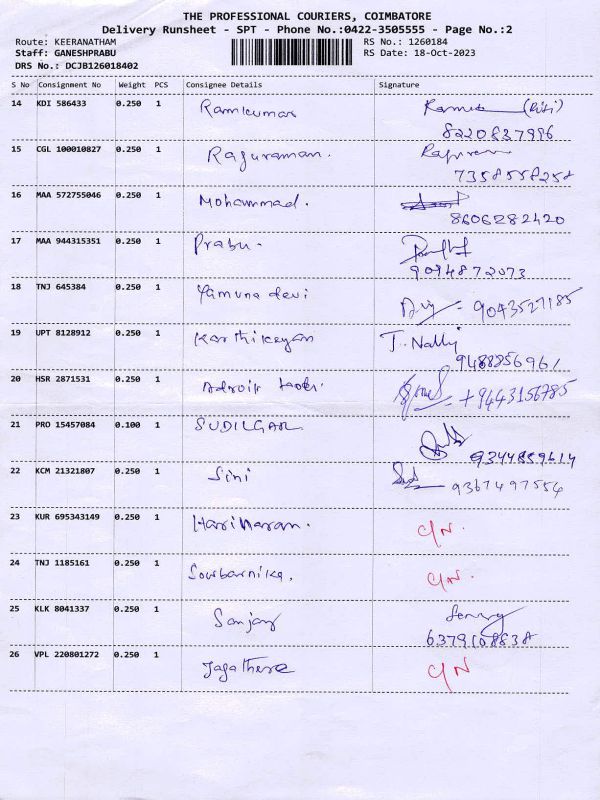 THE PROFESSIONAL COURIERS, COIMBATORE
Delivery Runsheet - SPT - Phone No.:0422-3505555 - Page No.:2
Route: KEERANATHAM RS No.: 1260184
Staff: GANESHPRABU RS Date: 18-Oct-2023
DRS No.: DCJB126018402
S No Consignment No Weight PCS Consignee Details Signature
14 KDI 586433 0.250 1 Ramkumar
8220837996
15 CGL 100010827 0.250 1 Raguraman.
7358558258
16 MAA 572755046 0.250 1 Mohammad.
8606282420
17 MAA 944315351 0.250 1 Prabu.
9094872073
18 TNJ 645384 0.250 1 Yamuna devi 9043527185
19 UPT 8128912 0.250 1 Karthikeyan J. Nally
9488856961
20 HSR 2871531 0.250 1 Adroit +9443156785
21 PRO 15457084 0.100 1 SUDILGAR
9344859614
22 KCM 21321807 0.250 1 Sini 9367497554
23 KUR 695343149 0.250 1 Hariharan. C/N.
24 TNJ 1185161 0.250 1 Sowbarnika. C/N.
25 KLK 8041337 0.250 1 Sanjay
6379108838
26 VPL 220801272 0.250 1 C/N